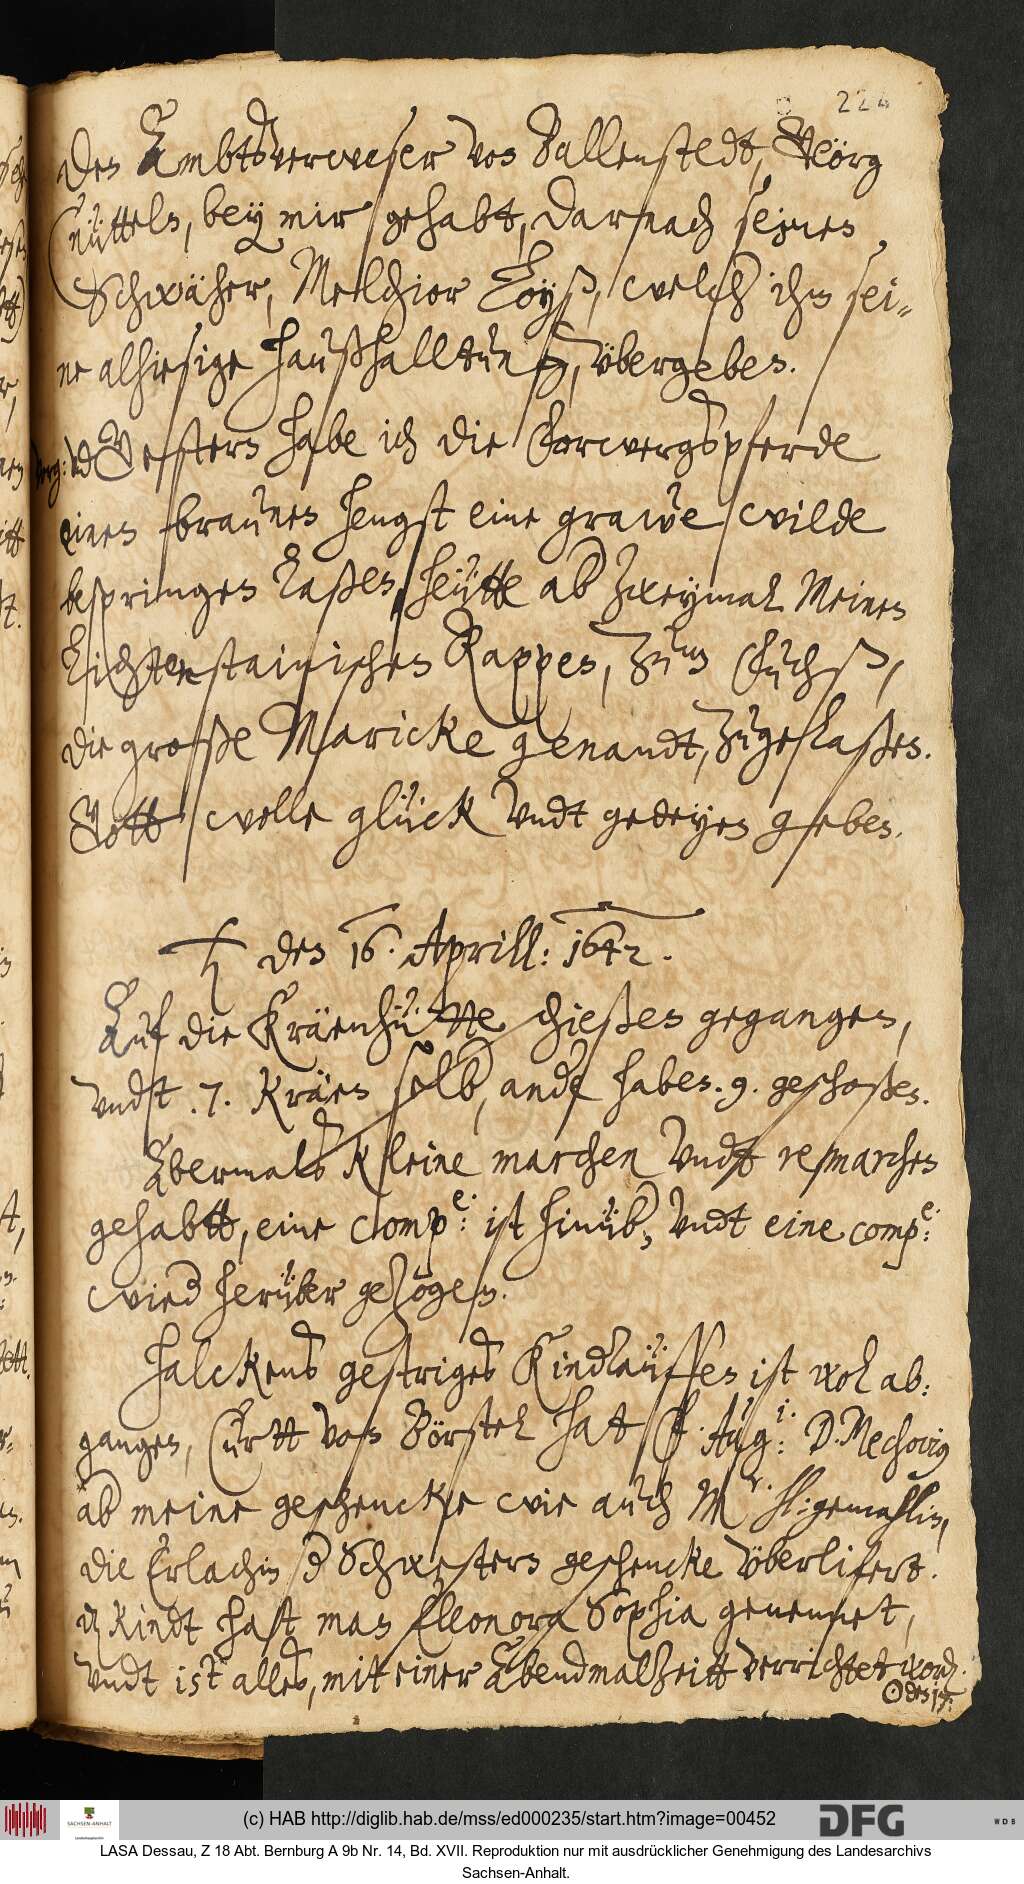 224
den Ambtsverweser von Ballenstedt, Geörg
Knütteln, bey mir gehabt, darnach seinen
Schwäher, Melchior Loyß, welcher ihm sei-
ne alhiesige haußhalltung, übergeben.
Gestern habe ich die Vorwergspferde
einen braunen hengst eine grawe wilde
bespringen laßen, heütte aber zweymal Meinen
Lichtenstainischen Rappen, zum Fuchß,
die große Maricke genandt, zugelaßen.
Gott wolle glück undt gedeyen geben.
♄ den 16. Aprill: 1642.
Auf die Kräenhütte schießen gegangen,
undt .7. Kräen selber, andere haben .9. geschoßen.
Abermals kleine marchen undt remarchen
gehabtt, eine compe: ist hinüber, undt eine compe:
wieder herüber gezogen.
Halckens gestriges Kindleüffen ist wol ab:
gangen, Curtt von Börstel hat F. Augi: D. Mechovius
aber meine geschencke wie auch Mr. hl: gemahlin,
die Erlachin der Schwestern geschencke überlifert.
Das kindt hatt man Elleonora Sophia genennet,
undt ist alles, mit einer Abendmalzeitt verrichtet worden.
☉ den 17:
(c) HAB http://diglib.hab.de/mss/ed000235/start.htm?image=00452
SACHSEN-ANHALT
DFG
WDB
LASA Dessau, Z 18 Abt. Bernburg A 9b Nr. 14, Bd. XVII. Reproduktion nur mit ausdrücklicher Genehmigung des Landesarchivs
Sachsen-Anhalt.